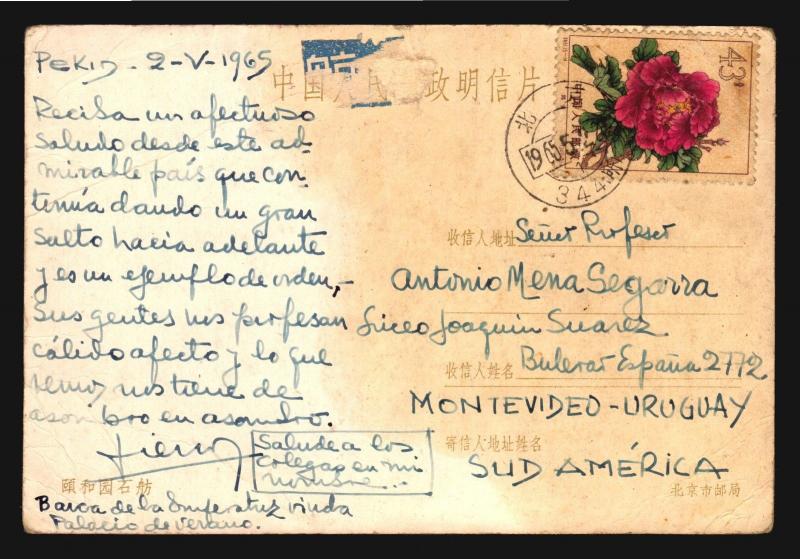 PeKin - 2-V-1965
Reciba un afectuoso
saludo desde este ad-
mirable país que con-
tinúa dando un gran
salto hacia adelante
y es un ejemplo de orden,-
Sus gentes nos profesan
cálido afecto y lo que
vemos nos tiene de
asombro en asombro.
Salude a los
colegas en mi
nombre...
颐和园石舫
Barca de la Emperatriz viuda
Palacio de Verano.
中国人民 政明信片
43
中国人民邮政
北
1965
344
收信人地址
Señor Profesor
Antonio Mena Segarra
Liceo Joaquín Suarez
收信人姓名
Bulevar España 2772
MONTEVIDEO-URUGUAY
寄信人地址姓名
SUD AMÉRICA
北京市邮局